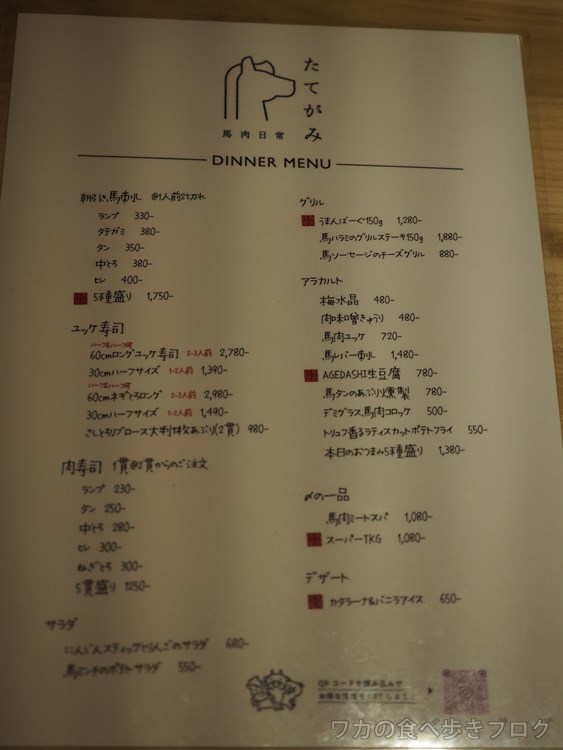 たてがみ
馬肉日常
DINNER MENU
朝引き馬刺し @1人前2切れ
ランプ 330-
タテガミ 380-
タン 350-
中とろ 380-
ヒレ 400-
5種盛り 1,750-
ユッケ寿司
ハーフ&ハーフ可
60cmロングユッケ寿司 2-3人前 2,780-
30cmハーフサイズ 1-2人前 1,390-
ハーフ&ハーフ可
60cmネギとろロング 2-3人前 2,980-
30cmハーフサイズ 1-2人前 1,490-
さしとろリブロース大判炙あぶり(2貫) 980-
肉寿司 1貫@2貫からのご注文
ランプ 230-
タン 250-
中とろ 280-
ヒレ 300-
ねぎとろ 300-
5貫盛り 1250-
サラダ
にんじんスティックとりんごのサラダ 680-
馬ミンチのポテトサラダ 550-
グリル
うまんばーぐ150g 1,280-
馬ハラミのグリルステーキ150g 1,880-
馬ソーセージのチーズグリル 880-
アラカルト
梅水晶 480-
肉味噌きゅうり 480-
馬肉ユッケ 720-
馬レバー刺し 1,480-
AGEDASHI生豆腐 780-
馬タンのあぶり燻製 780-
デミグラス馬肉コロッケ 500-
トリュフ香るラティスカットポテトフライ 550-
本日のおつまみ5種盛り 1,380-
〆の一品
馬肉ミートスパ 1,080-
スーパーTKG 1,080-
デザート
カタラーナ&バニラアイス 650-
QRコードを読み込んで
ワカの食べ歩きブログ